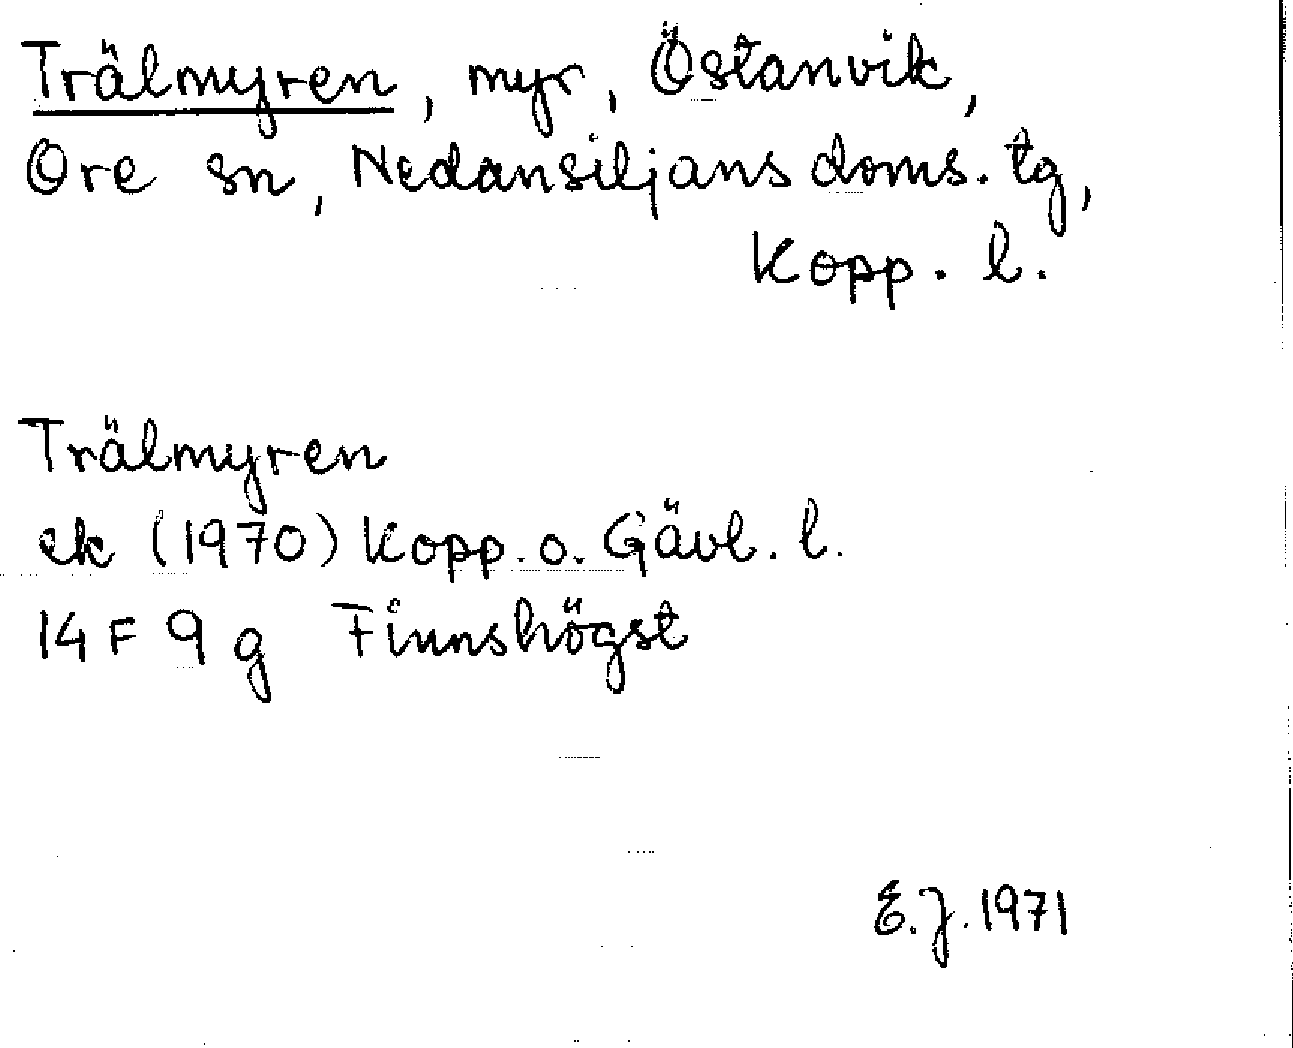 Trälmyren, myr, Östanvik,
Ore sn, Nedansiljans doms. tg,
Kopp. l.
Trälmyren
ek (1970) Kopp. o. Gävl. l.
14 F 9 g Finnshögst
E.J. 1971